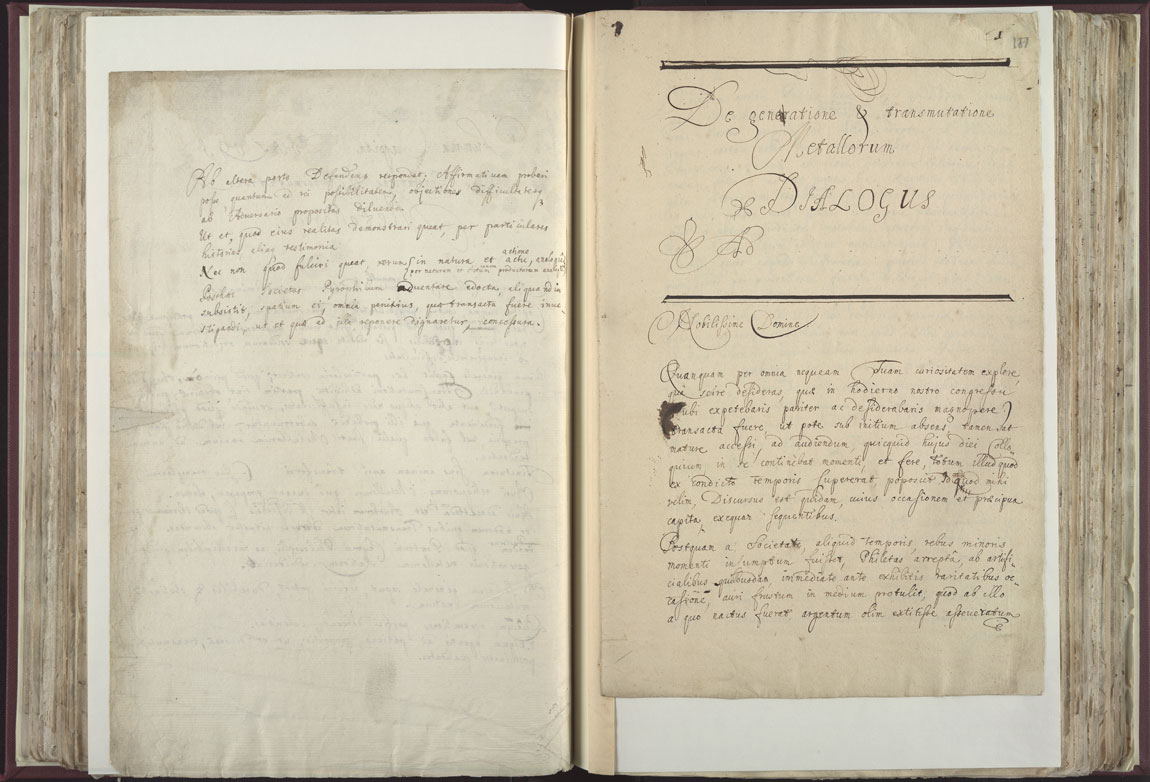 Ab altera parte Defendens respondet, Affirmativam probari
posse quantum ad rei possibilitatem, objectiones difficultates
ab Adversario propositas diluendo
Ut et, quod ejus realitas demonstrari queat, per particulares
historias, aliaque testimonia
Nec non quod fulciri queat, rerum in natura et actione
per naturam et artem productarum
Societas Pyrophilum adventare edocta, aliquandiu
subsistit, spatium ei, omnia penitius, quæ transacta fuere inve
stigandi, ut et quæ ad ista reponere dignaretur, concessura.
1
117
De generatione & transmutatione
Metallorum
DIALOGUS
Ad
Nobilissime Domine
Quanquam per omnia nequeam Tuam curiositatem explere,
qui scire desideras, quæ in hodierno nostro congressu
(ubi expetebaris pariter ac desiderabaris magnopere)
transacta fuere, ut pote sub initium absens, tamen sat
mature accessi, ad audiendum, quicquid hujus diei Collo
quium in se continebat momenti, et fere totum illud quod
ex condicto temporis supererat poposcit. Id quod mihi
velim, Discursus est quidam, cuius occasionem et præcipua
capita, exequar sequentibus.
Postquam a Societate, aliquid temporis, rebus minoris
momenti insumptum fuisset, Philetas arrepta, ab artifi-
cialibus quibusdam, immediate ante exhibitis raritatibus oc-
casione, auri frustum in medium protulit, quod ab illo
a quo nactus fuerat argentum olim extitisse asseveratum